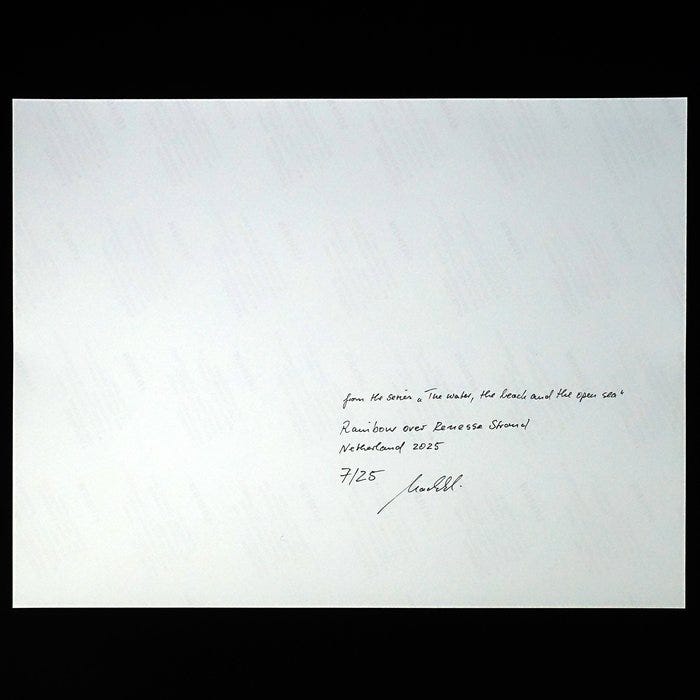 from the series „The water, the beach and the open sea“
Rainbow over Renesse Strand
Netherland 2025
7/25